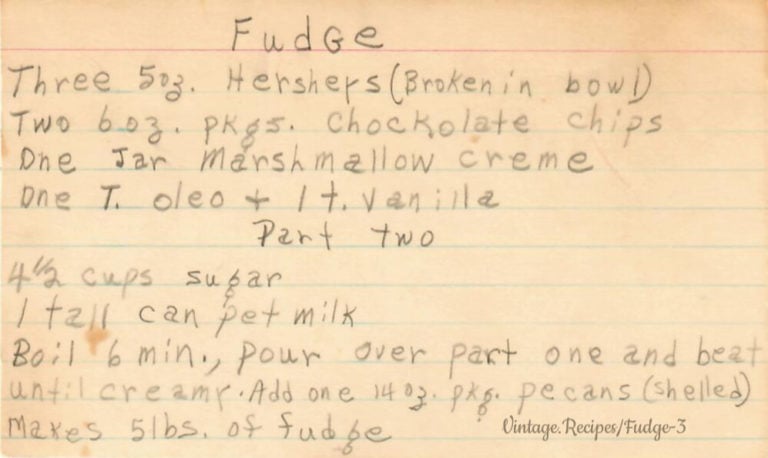 Fudge
Three 5oz. Hersheys (Broken in bowl)
Two 6 oz. pkgs. Chockolate chips
One Jar Marshmallow creme
One T. oleo + 1 t. vanilla
Part two
4 1/2 cups sugar
1 tall can pet milk
Boil 6 min., pour over part one and beat
until creamy. Add one 14 oz. pkg. pecans (shelled)
Makes 5 lbs. of fudge
Vintage.Recipes/Fudge-3